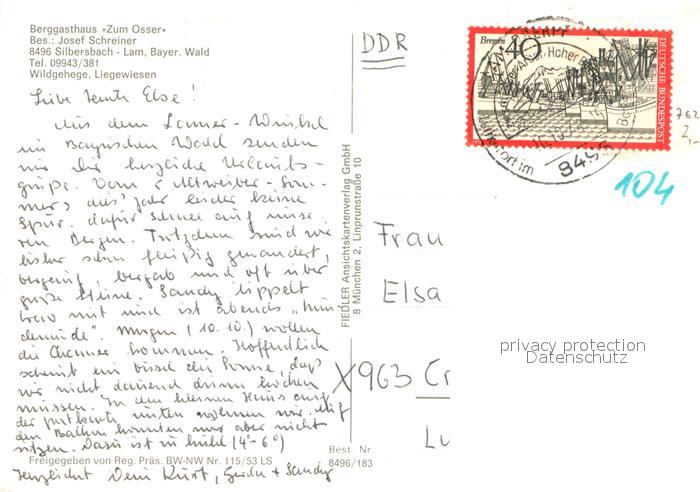 Berggasthaus »Zum Osser«
Bes.: Josef Schreiner
8496 Silbersbach - Lam, Bayer. Wald
Tel. 09943/381
Wildgehege, Liegewiesen
Liebe Tante Else!
Aus dem Lamer-Winkel
im Bayrischen Wald senden
wir Dir herzliche Urlaubs-
grüße. Vom "Altweiber-Som-
mer" dies' Jahr leider keine
Spur, dafür Schnee auf unse-
ren Bergen. Trotzdem sind wir
bisher sehr fleißig gewandert,
bergauf, bergab und oft über
große Steine. Sandy tippelt
brav mit und ist abends "hun
demüde". Morgen (10.10.) wollen
die Chamer kommen. Hoffentlich
scheint ein bissel die Sonne, daß
wir nicht dauernd drinn hocken
müssen. In dem kleinen Haus auf
der Postkarte unten wohnen wir. Auf
dem Balkon konnten wir aber nicht
sitzen. Dazu ist zu kühl (4°-6°)
Freigegeben von Reg. Präs. BW-NW Nr. 115/53 LS
Herzlichst Dein Kurt, Gerda + Sandy
Best. Nr.
8496/183
FIEDLER Ansichtskartenverlag GmbH
8 München 2, Linprunstraße 10
DDR
Bremen
40
DEUTSCHE BUNDESPOST
Hoher
8496
762
2,-
104
Frau
Elsa
X963 Cr
Lu
privacy protection
Datenschutz